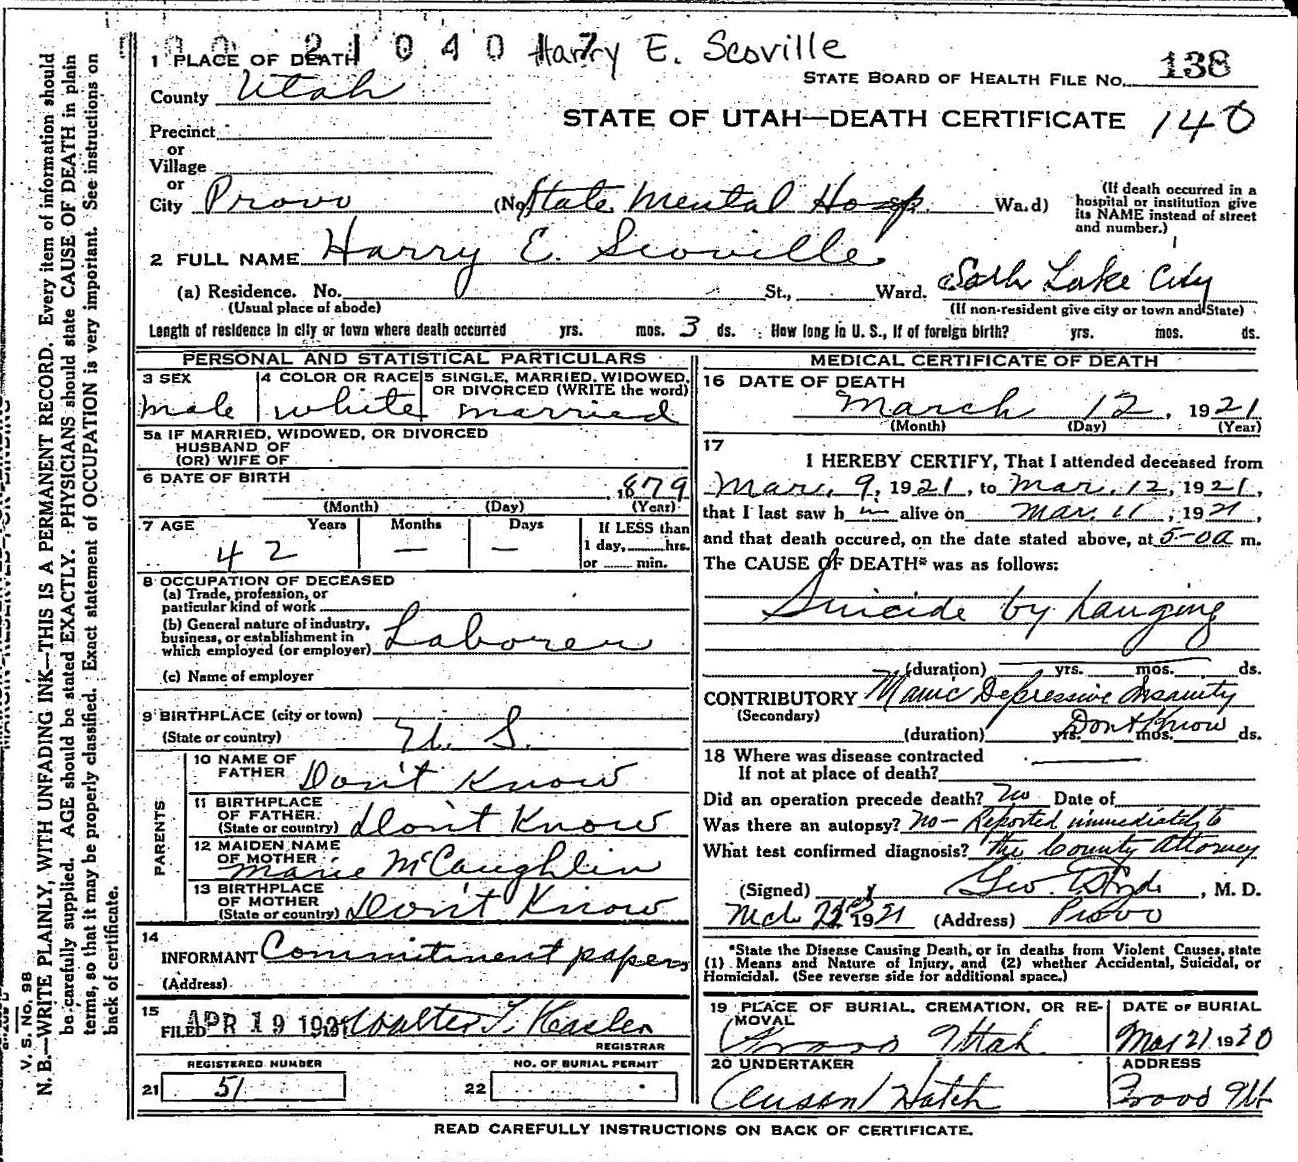 21040 Harry E. Scoville
1 PLACE OF DEATH
STATE BOARD OF HEALTH FILE No. 138
County Utah
STATE OF UTAH—DEATH CERTIFICATE 140
Precinct
or
Village
or
City Provo (No. State Mental Hosp. Ward)
(If death occurred in a hospital or institution give its NAME instead of street and number.)
2 FULL NAME Harry E. Scoville
(a) Residence. No. St., Ward. Lake City
(Usual place of abode) (If non-resident give city or town and State)
Length of residence in city or town where death occurred yrs. mos. 3 ds. How long in U. S., if of foreign birth? yrs. mos. ds.
PERSONAL AND STATISTICAL PARTICULARS
3 SEX
male
4 COLOR OR RACE
white
5 SINGLE, MARRIED, WIDOWED, OR DIVORCED (WRITE the word)
married
5a IF MARRIED, WIDOWED, OR DIVORCED
HUSBAND OF
(OR) WIFE OF
6 DATE OF BIRTH
1879
(Month) (Day) (Year)
7 AGE Years Months Days If LESS than
42 — — 1 day, hrs.
or min.
8 OCCUPATION OF DECEASED
(a) Trade, profession, or
particular kind of work
(b) General nature of industry,
business, or establishment in
which employed (or employer) Laborer
(c) Name of employer
9 BIRTHPLACE (city or town)
(State or country) U. S.
PARENTS
10 NAME OF
FATHER Don't Know
11 BIRTHPLACE
OF FATHER
(State or country) Don't Know
12 MAIDEN NAME
OF MOTHER Marie McCaughlin
13 BIRTHPLACE
OF MOTHER
(State or country) Don't Know
14
INFORMANT Commitment papers
(Address)
15
FILED APR 19 1921 Walter T.
REGISTRAR
REGISTERED NUMBER NO. OF BURIAL PERMIT
21 51 22
MEDICAL CERTIFICATE OF DEATH
16 DATE OF DEATH
March 12, 1921
(Month) (Day) (Year)
17
I HEREBY CERTIFY, That I attended deceased from
Mar. 9, 1921, to Mar. 12, 1921,
that I last saw h im alive on Mar. 11, 1921,
and that death occured, on the date stated above, at 5-00 a m.
The CAUSE OF DEATH* was as follows:
Suicide by hanging
(duration) yrs. mos. ds.
CONTRIBUTORY Manic Depressive Insanity
(Secondary)
(duration) yrs. Don't Know mos. ds.
18 Where was disease contracted
If not at place of death?
Did an operation precede death? No Date of
Was there an autopsy? No— Reported immediately to
What test confirmed diagnosis? the County Attorney
(Signed) Geo. , M. D.
1921 (Address) Provo
*State the Disease Causing Death, or in deaths from Violent Causes, state
(1) Means and Nature of Injury, and (2) whether Accidental, Suicidal, or
Homicidal. (See reverse side for additional space.)
19 PLACE OF BURIAL, CREMATION, OR REMOVAL
Provo Utah
DATE OF BURIAL
Mar 21 1920
20 UNDERTAKER
Hatch
ADDRESS
Provo Ut
READ CAREFULLY INSTRUCTIONS ON BACK OF CERTIFICATE.
V. S. No. 98
N. B.—WRITE PLAINLY, WITH UNFADING INK—THIS IS A PERMANENT RECORD. Every item of information should
be carefully supplied. AGE should be stated EXACTLY. PHYSICIANS should state CAUSE OF DEATH in plain
terms, so that it may be properly classified. Exact statement of OCCUPATION is very important. See instructions on
back of certificate.